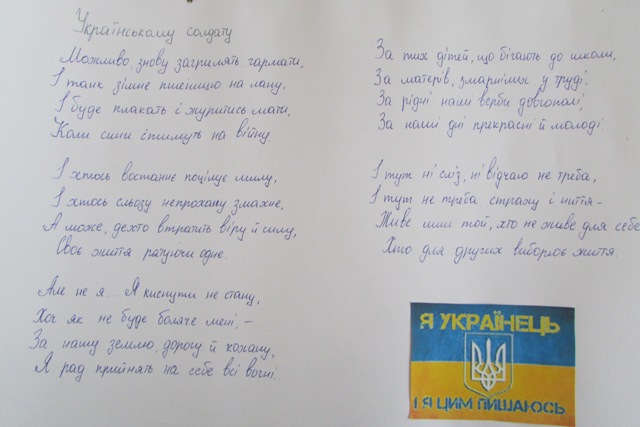 Українському солдату
Можливо, знову загримлять гармати,
І танк зімне пшеницю на лану,
І буде плакать і журитись мати,
Коли сини ітимуть на війну.
І хтось востаннє поцілує милу,
І хтось сльозу непрохану змахне,
А може, дехто втратить віру й силу,
Своє життя рятуючи одне.
Але не я... Я киснути не стану,
Хоч як не буде боляче мені, –
За нашу землю, дорогу й кохану,
Я рад прийнять на себе всі вогні.
За тих дітей, що бігають до школи,
За матерів, змарнілих у труді,
За рідні наші верби довгополі,
За наші дні прекрасні й молоді.
І тут ні сліз, ні відчаю не треба,
І тут не треба страху і ниття –
Живе лиш той, хто не живе для себе
Хто для других виборює життя.
Я УКРАЇНЕЦЬ
І Я ЦИМ ПИШАЮСЬ